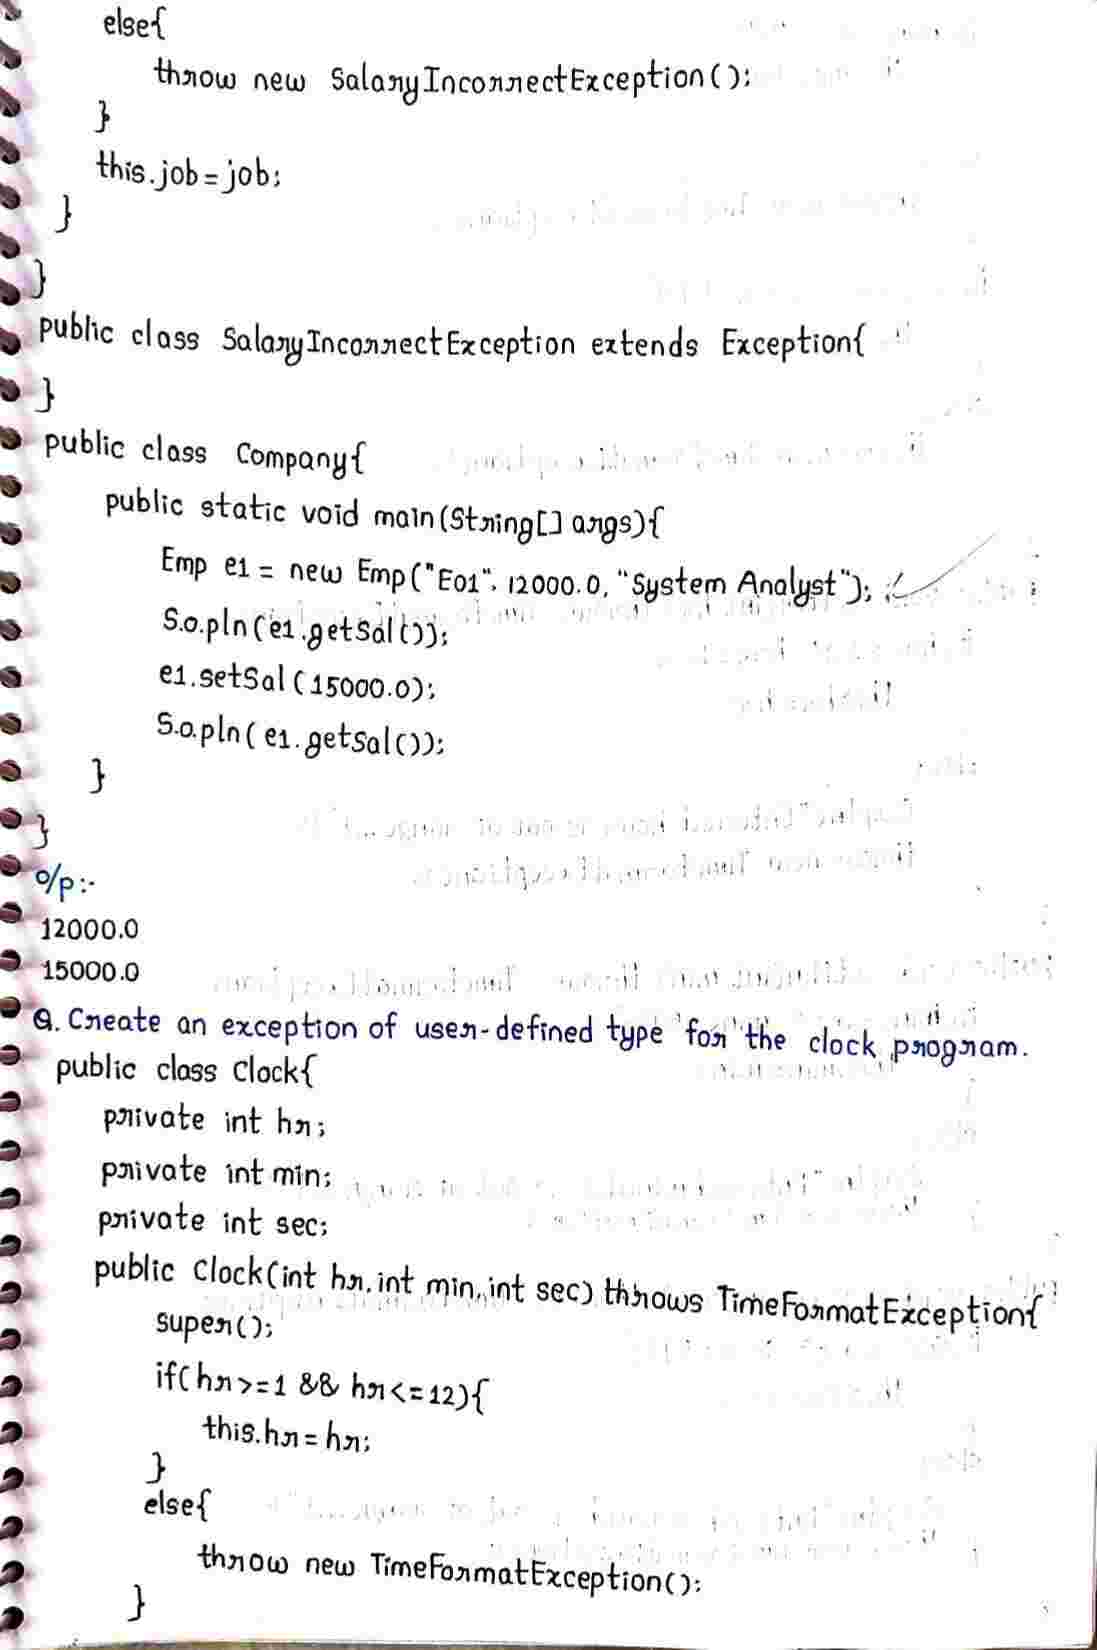 else{
throw new SalaryIncorrectException();
}
this.job = job;
}
}
public class SalaryIncorrectException extends Exception{
}
public class Company{
public static void main(String[] args){
Emp e1 = new Emp("E01", 12000.0, "System Analyst");
S.o.pln(e1.getSal());
e1.setSal(15000.0);
S.o.pln(e1.getSal());
}
}
o/p:-
12000.0
15000.0
Q. Create an exception of user-defined type for the clock program.
public class Clock{
private int hr;
private int min;
private int sec;
public Clock(int hr, int min, int sec) throws TimeFormatException{
super();
if(hr>=1 && hr<=12){
this.hr = hr;
}
else{
throw new TimeFormatException();
}